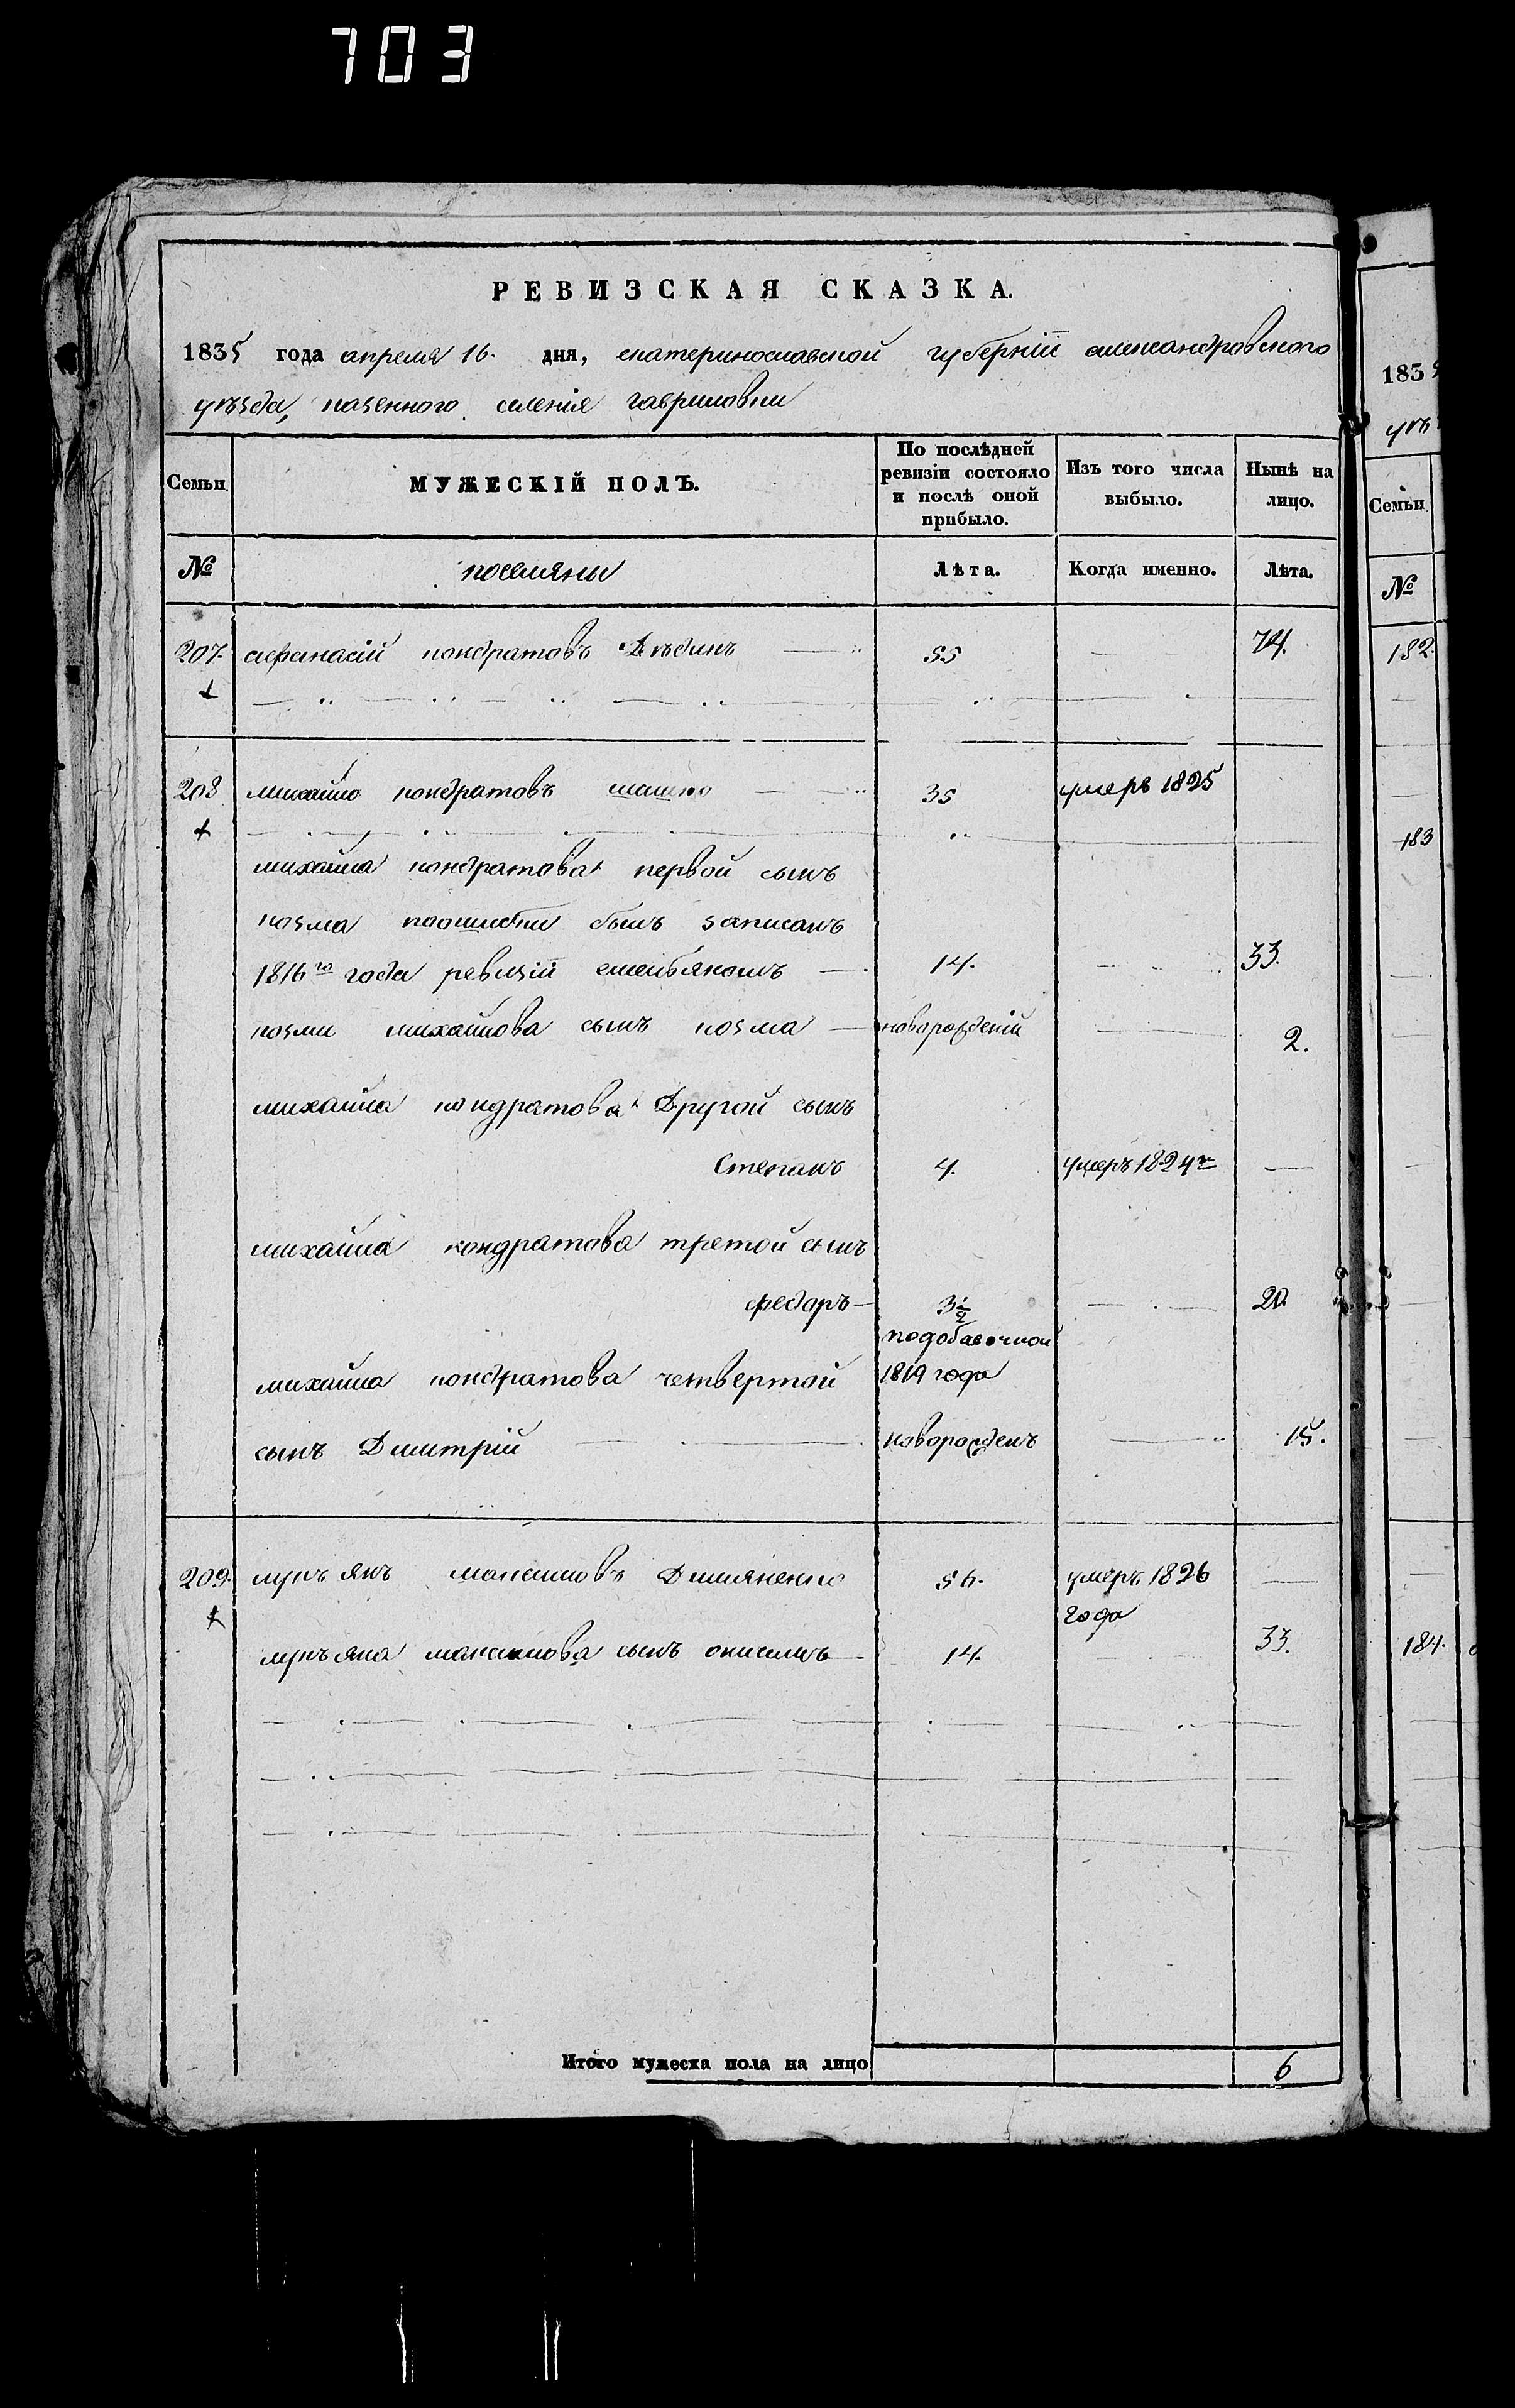 703
РЕВИЗСКАЯ СКАЗКА.
1835 года апреля 16. дня, екатеринославской губерніи александровского
уѣзда, казенного селенія гавриловки
Семьи
МУЖЕСКІЙ ПОЛЪ.
По послѣдней ревизіи состояло и послѣ оной прибыло.
Изъ того числа выбыло.
Нынѣ на лицо.
№ поселяны Лѣта. Когда именно. Лѣта.
207. афанасій кондратовъ Дѣдикъ 55 74.
208 михайло кондратовъ 35 умеръ 1825
михайла кондратова первой сынъ
козма поошибки былъ записанъ
1816го года ревизіи емельяномъ 14. 33.
козми михайлова сынъ козма новорожденій 2.
михайла кондратова Другой сынъ
Степанъ 4. умеръ 1824го
михайла кондратова третой сынъ
федоръ 3 1/2 20.
подобавочной
михайла кондратова четвертой 1819 года
сынъ Дмитрій новорожденъ 15.
209. лукъянъ максимовъ 56. умеръ 1826
года
лукъяна максимова сынъ онисимъ 14. 33.
Итого мужеска пола на лицо 6
1835
уѣ
Семьи
№
182.
183
184.